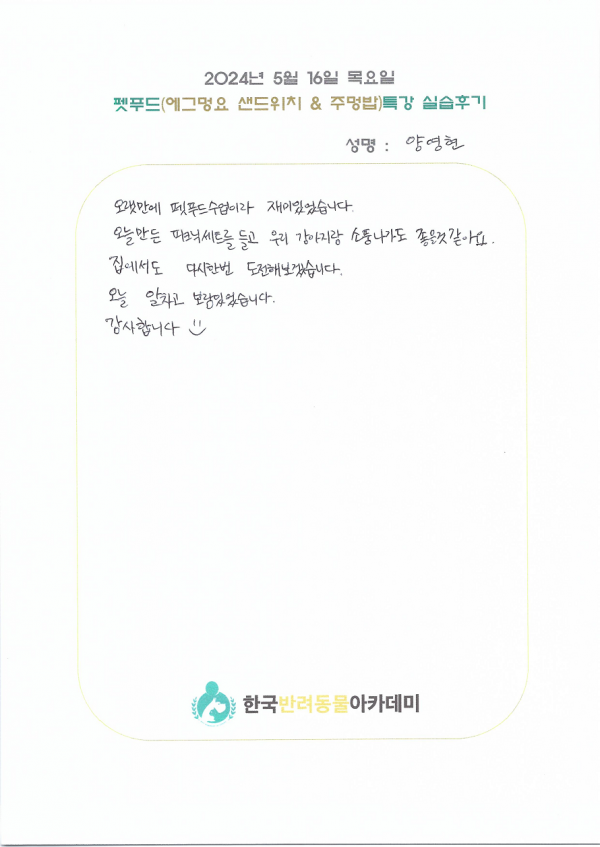 2024년 5월 16일 목요일
펫푸드(에그명요 샌드위치 & 주멍밥)특강 실습후기
성명 : 양영현
오랫만에 펫푸드수업이라 재미있었습니다.
오늘만든 피크닉세트를 들고 우리 강아지랑 소풍나가도 좋을것같아요.
집에서도 다시한번 도전해보겠습니다.
오늘 알차고 보람있었습니다.
감사합니다
한국반려동물아카데미